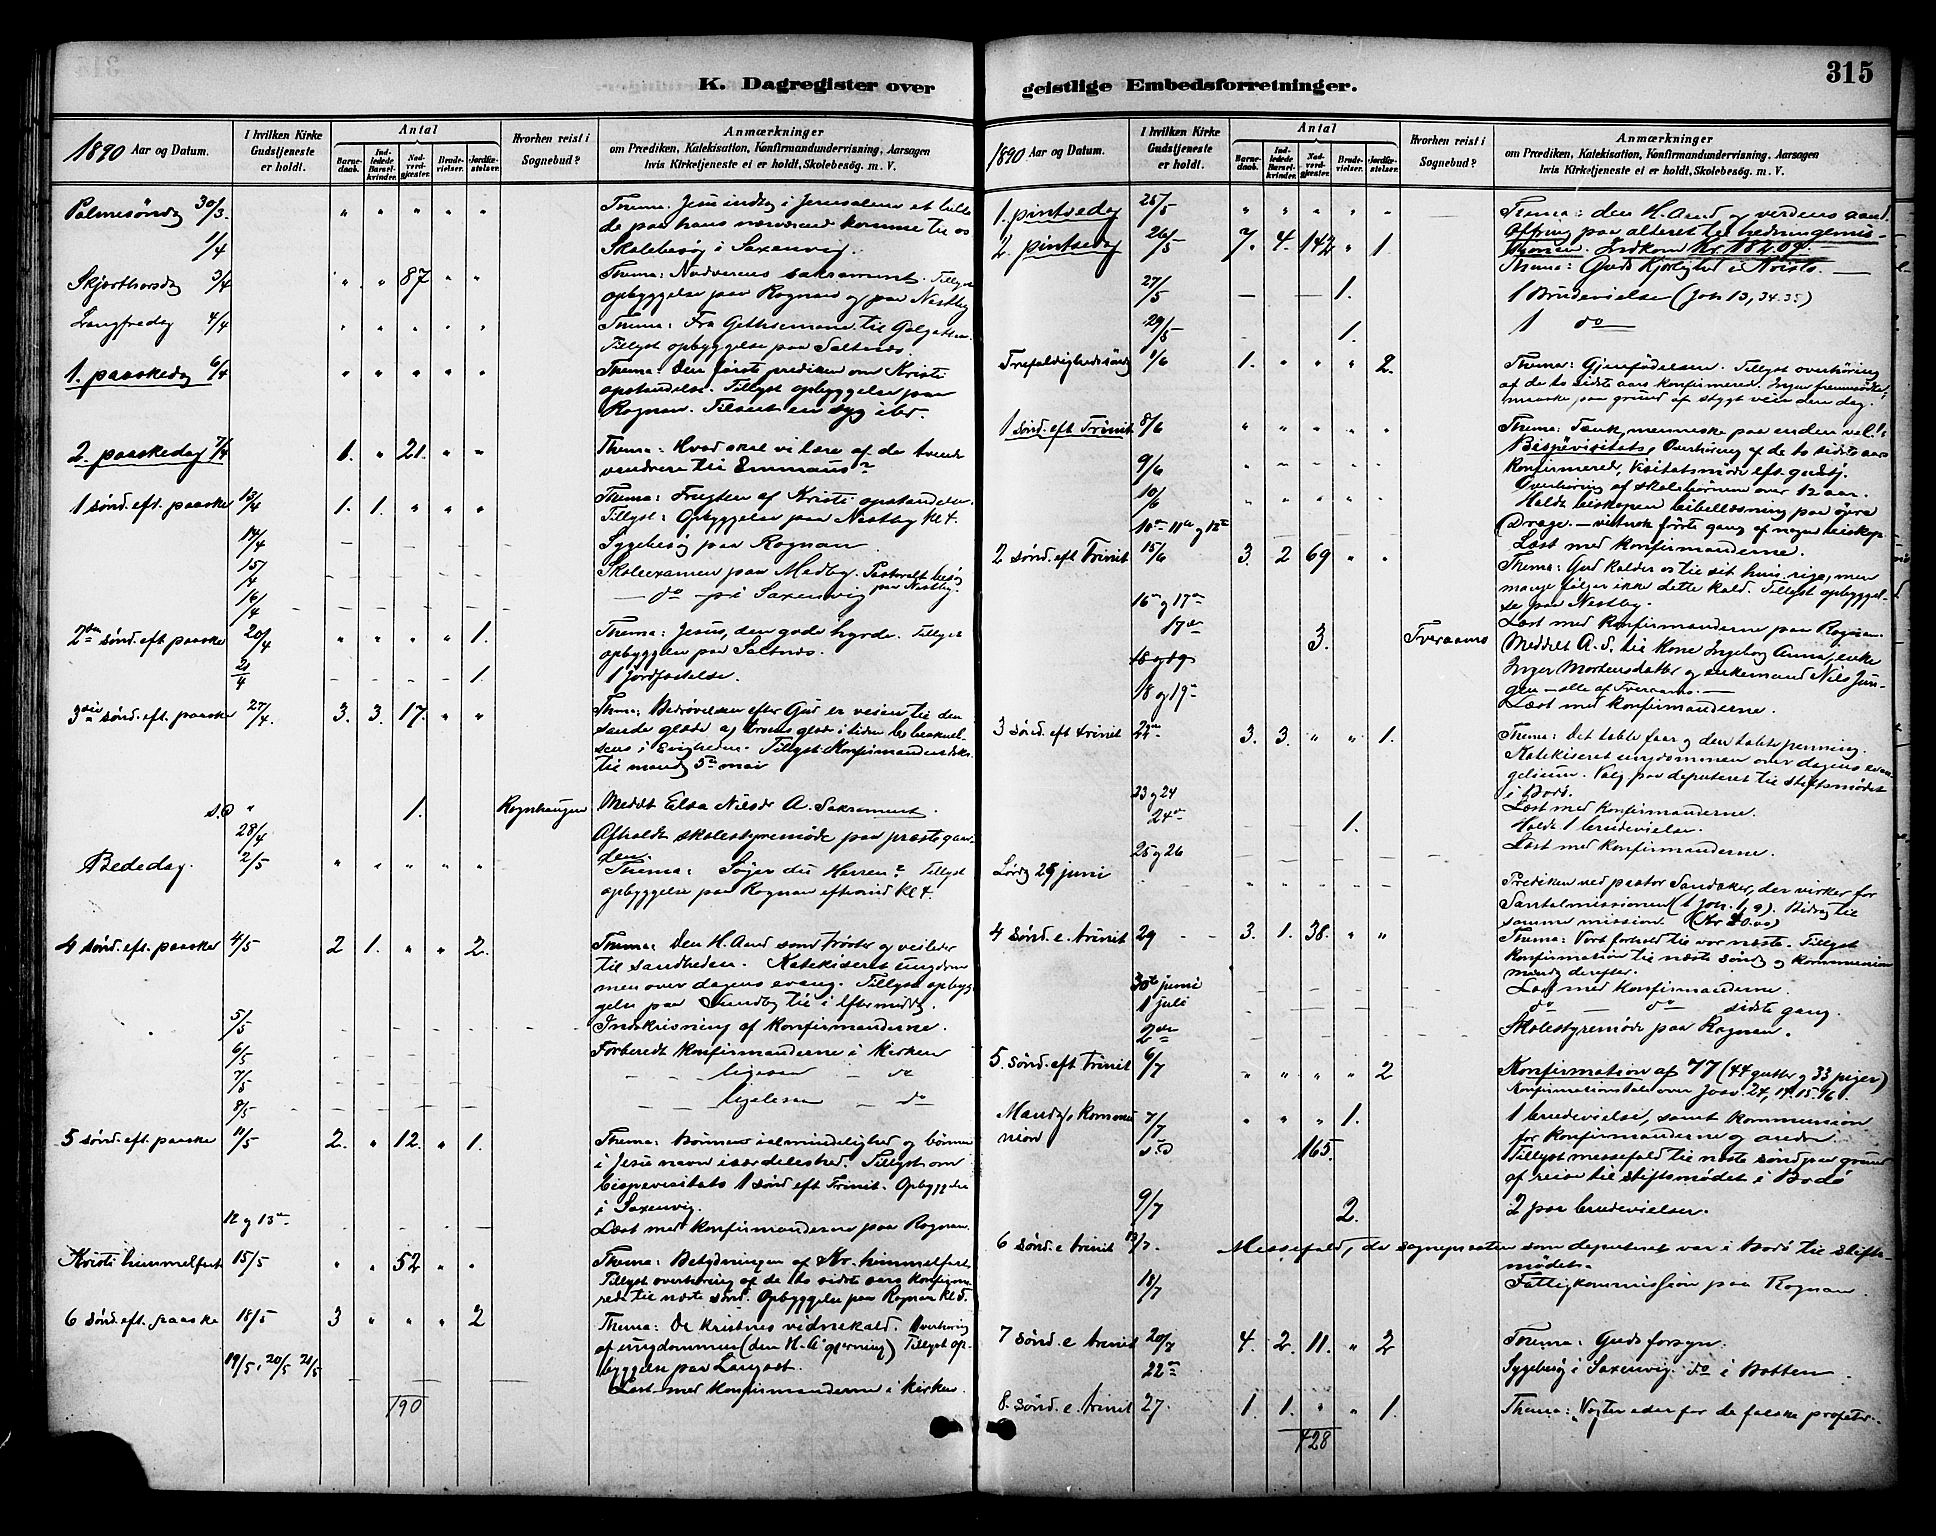 K. Dagregister over
1890 Aar og Datum.
I hvilken Kirke Gudstjeneste er holdt.
Antal
Barne-daab.
Ind-ledede Barsel-kvinder.
Nad-verd-gjæster.
Brude-vielser.
Jordfæ-stelser.
Hvorhen reist i Sognebud?
Anmærkninger
om Prædiken, Katekisation, Konfirmandundervisning, Aarsagen
hvis Kirketjeneste ei er holdt, Skolebesøg. m. V.
Palmesöndg 30/3. " " " " " Thema: Jesu indtog i Jerusalem et billede paa hans nærværende komme til os
1/4 Skolebesøg i Saxenvig.
Skjærthorsdg 3/4 " " 87 " " Thema: Nadverens sakrament. Tillyst
opbyggelse paa Rognan og paa Nestby
Langfredag 4/4 " " " " " Thema: Fra Gethsemane til Golgatha.
Tillyst opbyggelse paa Saltnes.
1. paaskedag 6/4 " " " " " Thema: Den første prediken om Kristi
opstandelse. Tillyst opbyggelse paa
Rognan. Tilseet en syg ibd.
2. paaskedag 7/4 1. " 21. " " Thema: Hvad skal vi lære af de tvende
vandrere til Emmaus?
1 sönd. eft. paaske 13/4 1. 1. " " " Thema: Frugten af Kristi opstandelse.
Tillyst: Opbyggelse paa Nestby kl 4.
14/4 Sygebesøg paa Rognan.
15/4 Skoleexamen paa Medby. Pastoralt besøg paa Nestby.
16/4 — do — på Saxenvig
2den sönd. eft paaske 20/4 " " " " 1. Thema: Jesus, den gode hyrde. Tillyst
opbyggelse paa Saltnes.
21/4 1. 1 jordfæstelse.
3die sönd. eft. paaske 27/4. 3. 3. 17. " " Thema: Bedrøvelsen efter Gud er veien til den
sande glæde og troens glæde i tiden
i Evigheden. Tillyst Konfirmandindskr.
til mandg 5te mai
s.D " 1. Rognhaugen Meddt Elsa Nilsdr A. Sakrament.
28/4 Afholdt skolestyremøde paa præstegaarden.
Bededag. 2/5 " " " " " Thema: Søger du Herren? Tillyst
opbyggelse paa Rognan efterm kl 4.
4 sönd. eft. paaske 4/5 2 1. " " 2. Thema: Den H. Aand som trøster og veileder
til sandheden. Katekiseret ungdommen over dagens evang. Tillyst opbyggelse paa Sundby til i eftermiddg.
5/5 Indskrivning af konfirmanderne.
6/5 Forberedt konfirmanderne i kirken
7/5 ligesaa — do
8/5 ligeledes — do
5 sönd. eft. paaske 11/5 2. " 12. " 1. Thema: Bønnens i almindelighed og bønnen
i Jesu navn isærdeleshed. Tillyst om
bispevisitats 1 sönd eft Trinit. Opbyggelse
i Saxenvig.
12 og 13de Læst med konfirmanderne paa Rognan.
Kristi himmelfart 15/5 " " 52 " " Thema: Betydningen af Kr. himmelfart.
Tillyst overhøring af de to sidste aars konfirmerede til næste sönd. Opbyggelse paa Rognan kl 5.
6 sönd. eft. paaske 18/5 3 " " " 2 Thema: De kristnes vidnekald. Overhøring
af ungdommen (den H. A's gjerning) Tillyst opbyggelse paa Langset.
19/5, 20/5 21/5 Læst med konfirmanderne i kirken.
190
geistlige Embedsforretninger.
315
1890 Aar og Datum.
I hvilken Kirke Gudstjeneste er holdt.
Antal
Barne-daab.
Ind-ledede Barsel-kvinder.
Nad-verd-gjæster.
Brude-vielser.
Jordfæ-stelser.
Hvorhen reist i Sognebud?
Anmærkninger
om Prædiken, Katekisation, Konfirmandundervisning, Aarsagen
hvis Kirketjeneste ei er holdt, Skolebesøg. m. V.
1. pintsedag 25/5 " " " " " Thema: den H. Aand og verdens aand.
2. pintsedag 26/5 7. 4. 142 " 1. Offring paa alteret til hedningemissionen. Indkom Kr. 18 2.09.
Thema: Guds kjærlighed i Kristo.
27/5 1. 1 Brudevielse (Joh 13, 34.35)
29/5 1. 1 do
Trefoldighedssöndg 1/6 1. " " " 2. Thema: Gjenfødelsen. Tillyst overhøring
af de to sidste aars konfirmered. Ingen fremmødte,
maaske paa grund af stygt veir den dag.
1 sönd. eft Trinit 8/6 " " " " " Thema: Tænk, menneske paa enden vel!
Bispevisitats, Overhøring af de to sidste aars
konfirmered, Visitatsmøde eft gudstj.
9/6 Overhøring af skolebørnene over 12 aar.
10/6 Holdt biskopen bibellæsning paa øvre
(Drage. — vistnok første gang af nogen biskop
10de 11te og 12te Læst med konfirmanderne.
2 sönd eft Trinit 15/6 3. 2 69 " " Thema: Gud kalder os til sit hus, rige, men
mange følger ikke dette kald. Tillyst opbyggelse paa Nestby.
16de og 17de Læst med konfirmanderne paa Rognan.
17de 3. Tveraaens Meddelt A. S. til kone Ingeborg Anna, enke
Inger Mortensdatter og enkemand Nils
— alle af Tveraaens. —
18 og 19de Læst med konfirmanderne.
3 sönd. eft trinit 22de 3. 3. " " 1. Thema: Det tabte faar og den tabte penning.
Katekiseret ungdommen over dagens evangelium. Valg paa deputeret til stiftsmødet
i Bodö.
23 og 24 Læst med konfirmanderne.
24de 1. Holdt 1 brudevielse.
25 og 26 Læst med konfirmanderne.
Lördg 28 juni Prediken ved pastor Sandaker, der virker for
Santalmissionen (1 Joh. 1, 9). Bidrag til
samme mission. (Kr 20.00)
4 sönd. e. trinit 29 3. 1. 38. " " Thema: Vort forhold til vor næste. Tillyst
konfirmation til næste söndg og kommunion
mandg derefter.
30te juni Læst med konfirmanderne.
1 juli do do sidste gang.
2den Skolestyremøde paa Rognan.
5. sönd. eft trinit 6/7 " " " " 2 Konfirmation af 77 (44 gutter og 33 piger)
Konfirmationstale over Josv. 24, 14. 15. 16.
Mandgs kommunion 7/7 " " " 1. 1 brudevielse, samt kommunion
for konfirmanderne og andre
s.D 165. Tillyst messefald til næste söndg paa grund
af reise til stiftsmødet i Bodö
9/7 2. 2 par brudevielser.
6 sönd. e trinit 13/7. Messefald, da sognepræsten som deputeret var i Bodö til stiftsmødet.
18/7 Fattigkommission paa Rognan.
7 sönd. e trinit 20/7 4. 2. 11. " 2 Thema: Guds forsyn.
22de Sygebesøg i Saxenvig. do i Botten.
8. sönd. e. trinit 27. 1. 1. " " 1. Thema: "Vogter eder for de falske profeter.
428